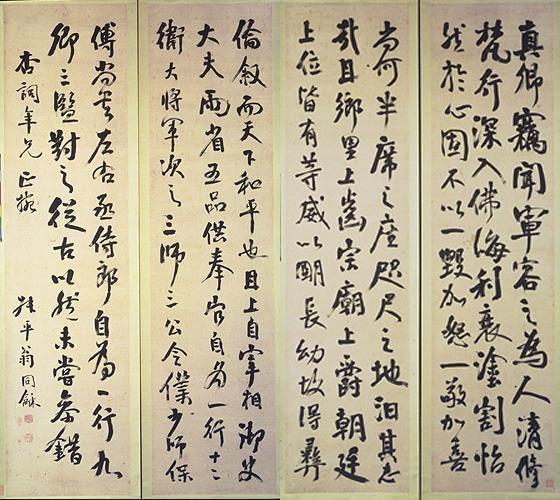 真卿竊聞軍容之為人清修
梵行深入佛海利衰塗割恬
然於心固不以一毀加怒一敬加喜
尚何半席之座咫尺之地汩其志
哉且鄉里上齒宗廟上爵朝廷
上位皆有等威以明長幼故得彝
倫敘而天下和平也且上自宰相御史
大夫兩省五品供奉官自為一行十二
衛大將軍次之三師三公令僕少師保
傅尚書左右丞侍郎自為一行九
卿三監對之從古以然未嘗參錯
杏詞年兄正
叔平翁同龢